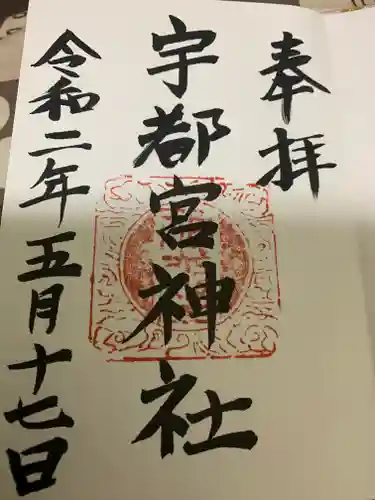 奉拝
宇都宮神社
令和二年五月十七日